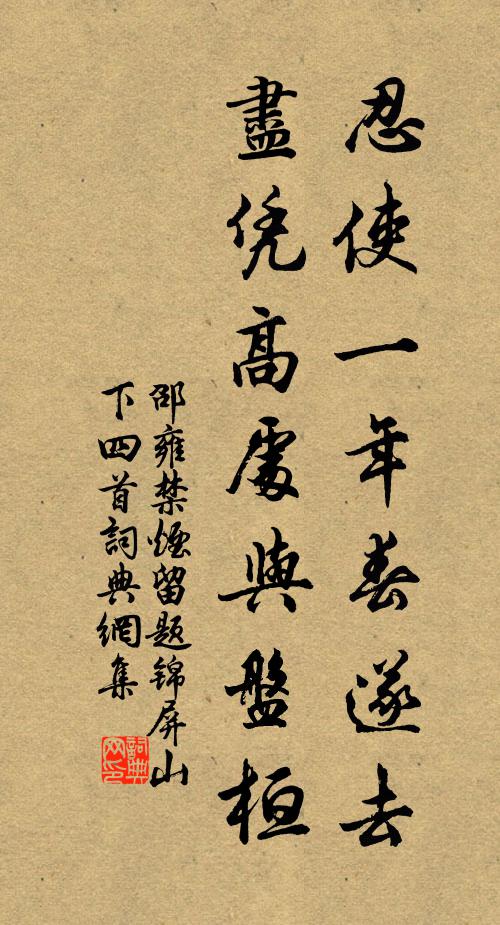 忍使一年春遂去
盡凭高處與盤桓
邵雍禁煙留題錦屏山
下四首詞典網集
詞典网印